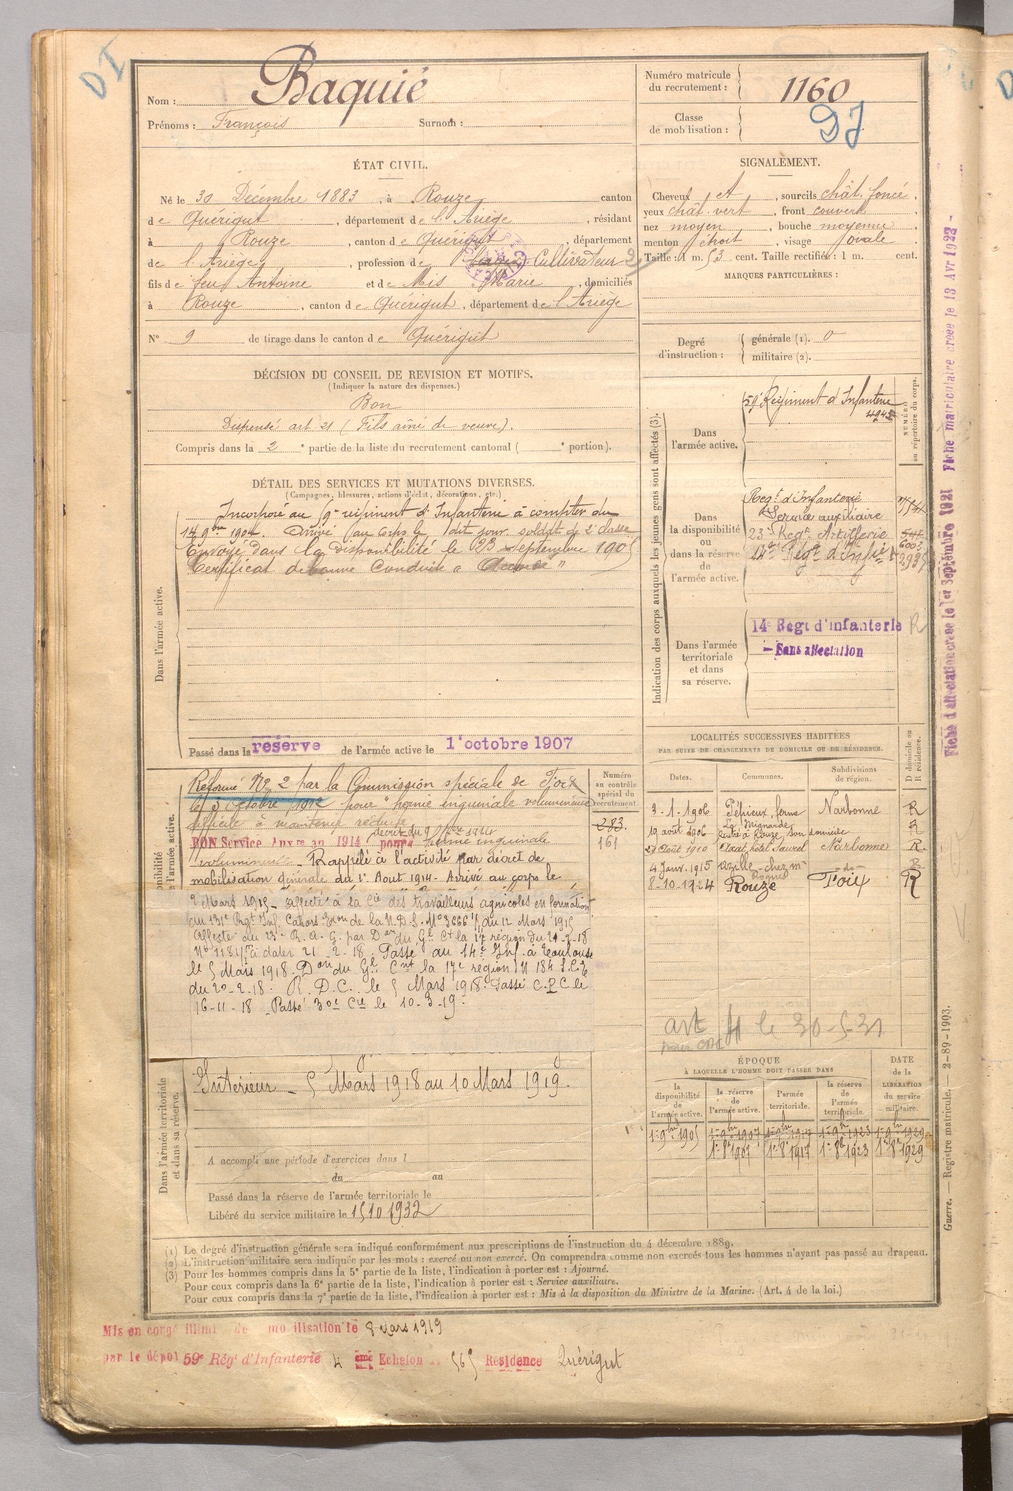 DI
Nom : Baquié
Prénoms : François Surnom :
Numéro matricule du recrutement : 1160
Classe de mobilisation :
DI
ÉTAT CIVIL.
Né le 30 Décembre 1883, à Rouze canton
de Quérigut, département de l'Ariège, résidant
à Rouze, canton de Quérigut, département
de l'Ariège, profession de Cultivateur
fils de feu Antoine et de Mis Marie, domiciliés
à Rouze, canton de Quérigut, département de l'Ariège
N° 9 de tirage dans le canton de Quérigut
SIGNALEMENT.
Cheveux et, sourcils chât. foncé,
yeux chât. vert, front couvert,
nez moyen, bouche moyenne,
menton étroit, visage ovale
Taille : 1 m. 53 cent. Taille rectifiée : 1 m. cent.
MARQUES PARTICULIÈRES :
Degré d'instruction : générale (1). 0
militaire (2).
DÉCISION DU CONSEIL DE REVISION ET MOTIFS.
(Indiquer la nature des dispenses.)
Bon
Dispensé art 21 (Fils aîné de veuve).
Compris dans la 2e partie de la liste du recrutement cantonal ( e portion).
DÉTAIL DES SERVICES ET MUTATIONS DIVERSES.
(Campagnes, blessures, actions d'éclat, décorations, etc.)
Dans l'armée active.
Incorporé au 59e régiment d'Infanterie à compter du
14 9bre 1904. Arrivé au corps le dit jour. soldat de 2e classe
Envoyé dans la disponibilité le 23 Septembre 1905
Certificat de bonne Conduite "Accordé"
Passé dans la réserve de l'armée active le 1er octobre 1907
Indication des corps auxquels les jeunes gens sont affectés (3).
NUMÉRO au répertoire du corps.
Dans l'armée active.
59e Régiment d'Infanterie
4942
Dans la disponibilité ou dans la réserve de l'armée active.
Regt d'Infanterie
Service auxiliaire
23e Regt Artillerie
14e Regt d'Inf
Dans l'armée territoriale et dans sa réserve.
14e Regt d'infanterie R
Sans affectation
LOCALITÉS SUCCESSIVES HABITÉES
PAR SUITE DE CHANGEMENTS DE DOMICILE OU DE RÉSIDENCE.
Dates. Communes. Subdivisions de région. D domicile ou R résidence.
3-1-1906 Pérjeux, ferme Narbonne R
19 août 1906 R
21 Août 1910 Narbonne R
4 Janv. 1915 Azille - chez m- do R
8-10-1924 Rouze Foix R
Numéro au contrôle spécial du recrutement.
283
161
Réformé No 2 par la Commission spéciale de Foix
le 3 octobre 1912 pour "hernie inguinale volumineuse
difficile à maintenir réduite
BON Service Auxre an 1914 pour hernie inguinale
décret du 9 7bre 1914
volumineuse. Rappelé à l'activité par décret de
mobilisation générale du 1er Aout 1914. Arrivé au corps le
2 Mars 1915 - affecté à la Cie des travailleurs agricoles en formation
au 131e Rgt Inf. Cahors
du 12 Mars 1915
Affecté du 23e R.A.C. par Don du Gl Ct la 17e région du 21-2-18
No à dater 21-2-18. Passé au 14e Inf. à Toulouse
le 5 Mars 1918. Don du Gl Cmt la 17e region N 184
du 20-2-18. R.D.C. le 5 Mars 1918. Passé C.P.C le
16-11-18 Passé 30e Cie le 10-3-19.
art 41 le 30-5-31
Dans l'armée territoriale et dans sa réserve.
Intérieur - 5 Mars 1918 au 10 Mars 1919.
A accompli une période d'exercices dans l
du au
Passé dans la réserve de l'armée territoriale le
Libéré du service militaire le 15 10 1932
ÉPOQUE
À LAQUELLE L'HOMME DOIT PASSER DANS
la disponibilité de l'armée active. la réserve de l'armée active. l'armée territoriale. la réserve de l'armée territoriale. DATE de la LIBÉRATION du service militaire.
1-9bre 1905 1-9bre 1907 1-9bre 1917 1-9bre 1923 1-9bre 1929
1-8bre 1907 1-8bre 1917 1-8bre 1923 1-8bre 1929
(1) Le degré d'instruction générale sera indiqué conformément aux prescriptions de l'instruction du 4 décembre 1889.
(2) L'instruction militaire sera indiquée par les mots : exercé ou non exercé. On comprendra comme non exercés tous les hommes n'ayant pas passé au drapeau.
(3) Pour les hommes compris dans la 5e partie de la liste, l'indication à porter est : Ajourné.
Pour ceux compris dans la 6e partie de la liste, l'indication à porter est : Service auxiliaire.
Pour ceux compris dans la 7e partie de la liste, l'indication à porter est : Mis à la disposition du Ministre de la Marine. (Art. 4 de la loi.)
Mis en congé illimité de mobilisation le 8 mars 1919
par le dépôt 59e Rég' d'Infanterie 4 ème Echelon 565 Résidence Quérigut
Fiche d'affectation créée le 1er Septembre 1921 Fiche matriculaire créée le 13 Avr 1923
Guerre. — Registre matricule. — 2-89-1903.